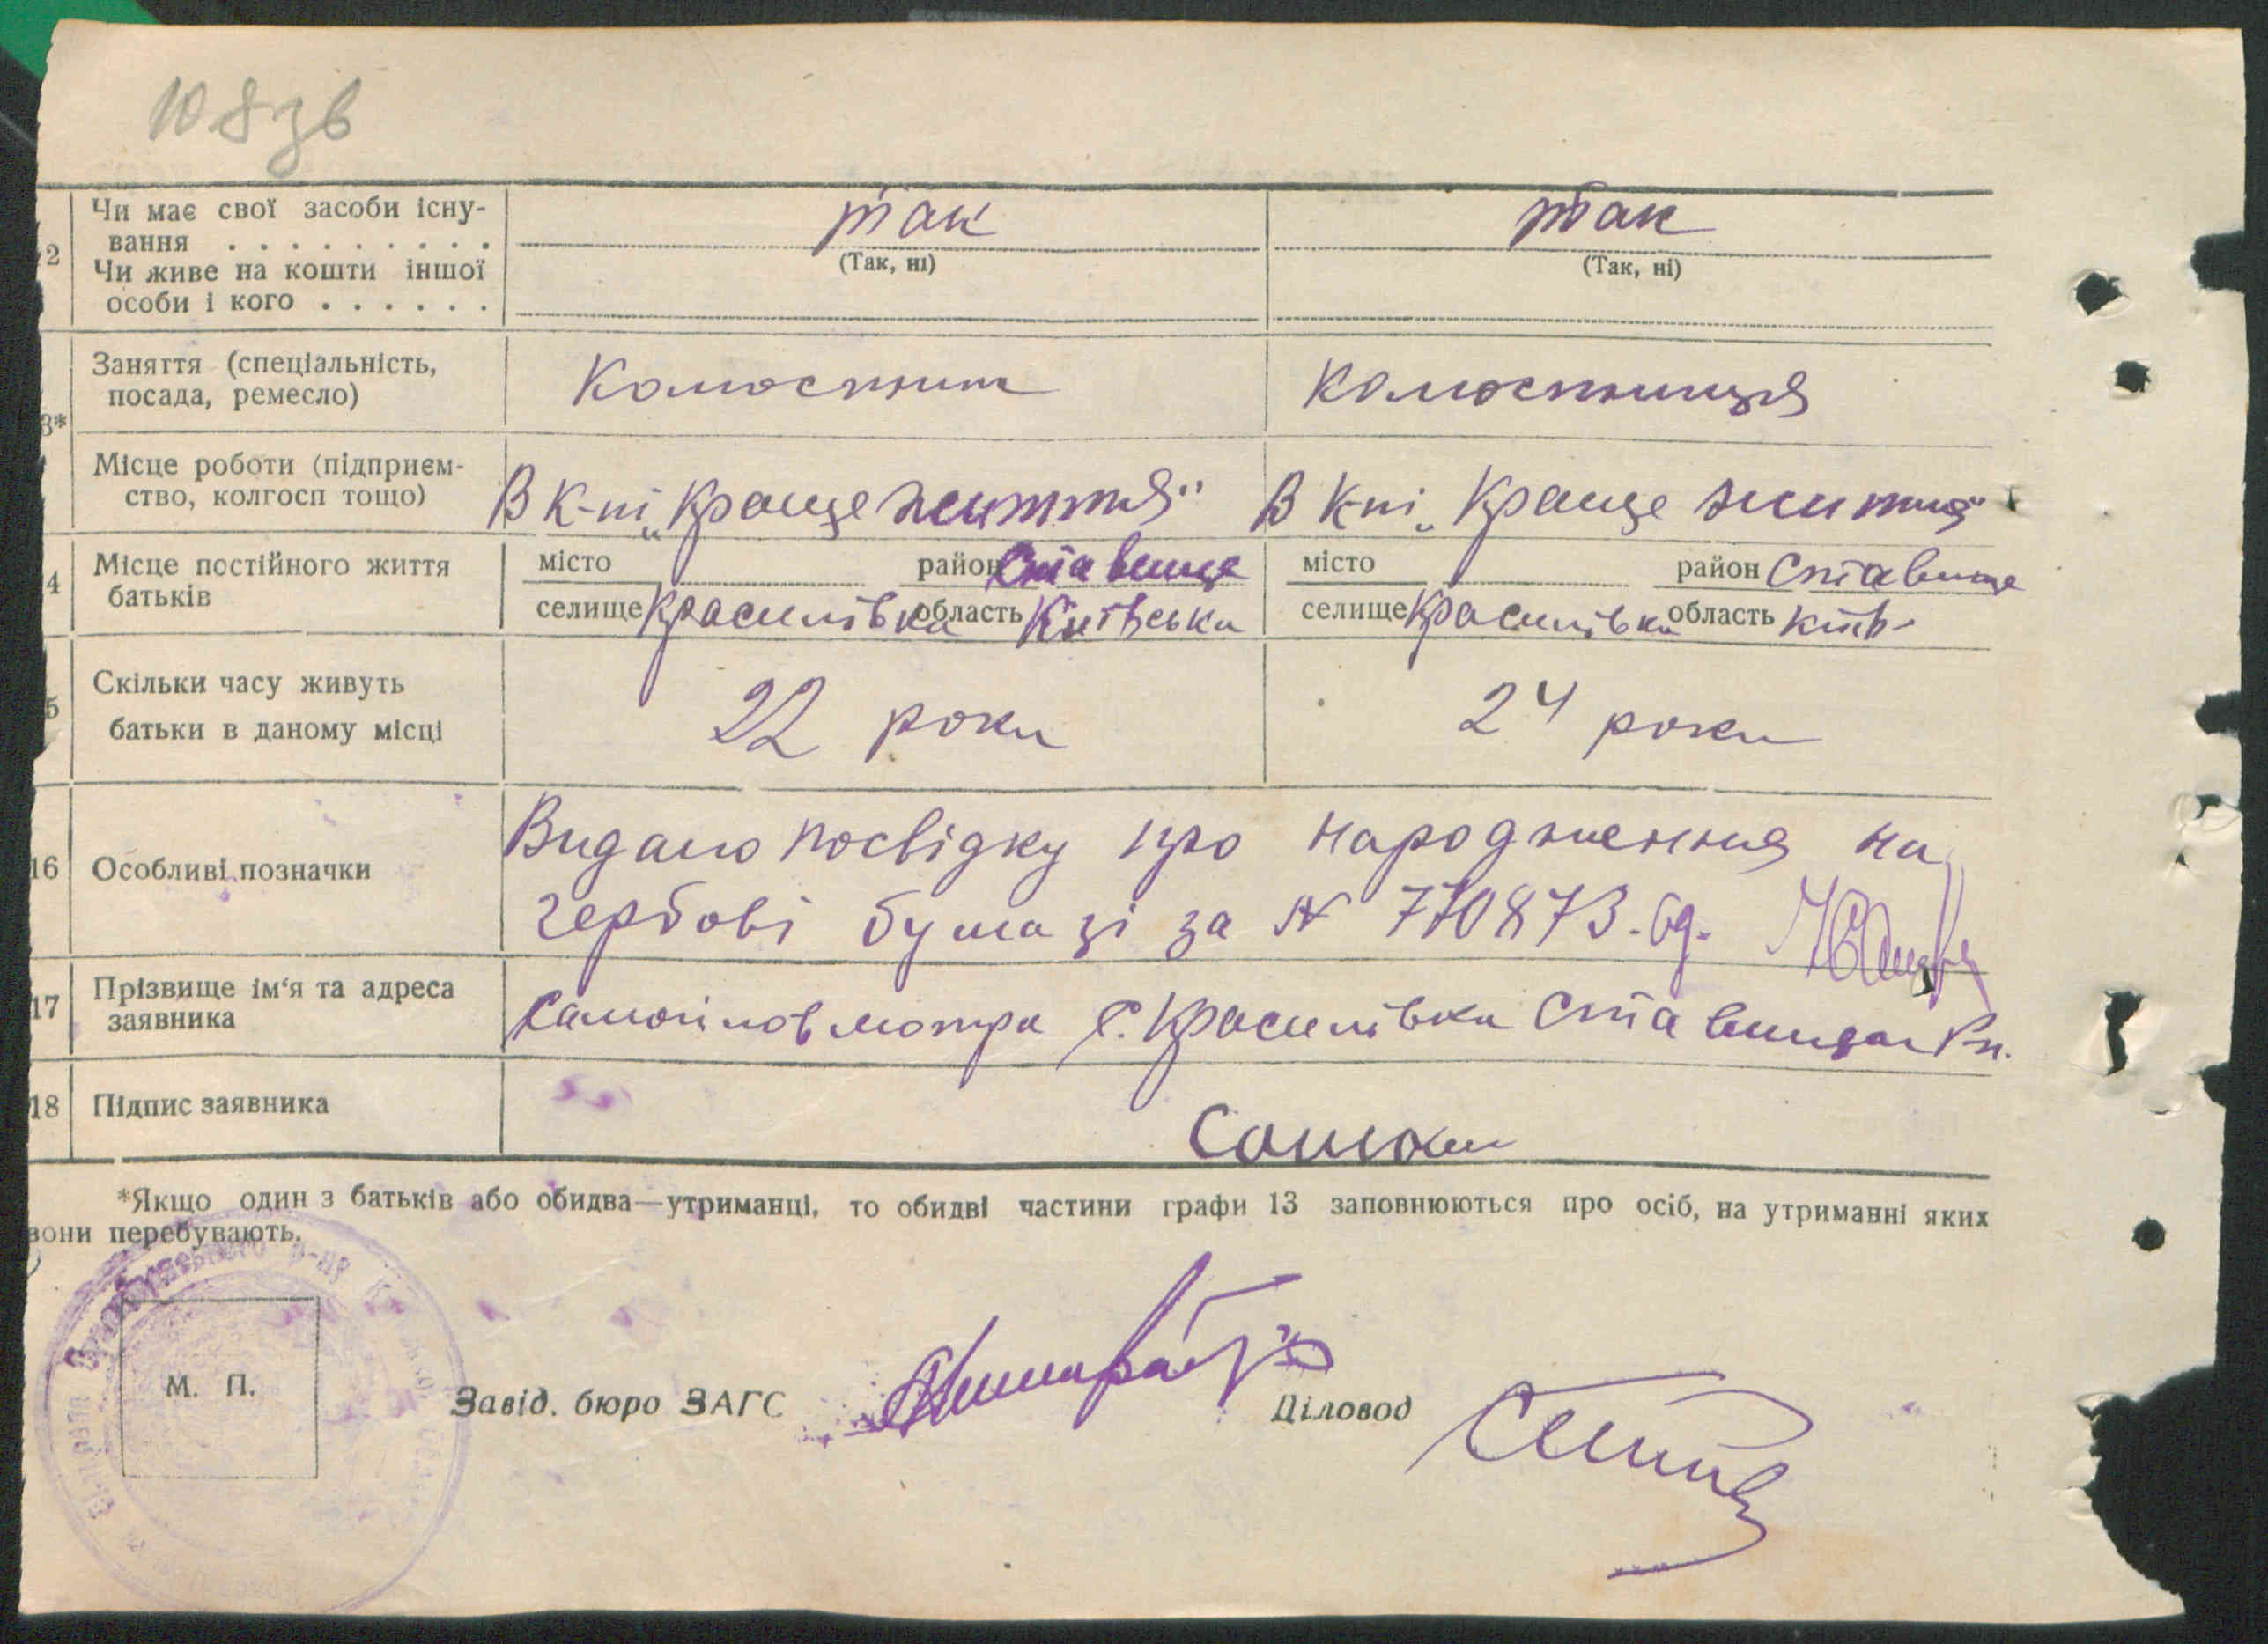 108зв
2 Чи має свої засоби існу- так так
вання . . . . . . . . . (Так, ні) (Так, ні)
Чи живе на кошти іншої
особи і кого . . . . . .
3* Заняття (спеціальність, Колгоспник Колгоспниця
посада, ремесло)
Місце роботи (підприєм- В К-пі „Краще життя" В К-пі „Краще життя"
ство, колгосп тощо)
4 Місце постійного життя місто район Ставище місто район Ставище
батьків селище Красилівка область Київська селище Красилівка область Київ.
5 Скільки часу живуть 22 роки 24 роки
батьки в даному місці
16 Особливі позначки Видано посвідку про народження на
гербові бумазі за № 770873.
17 Прізвище ім'я та адреса Мотря с. Красилівка
заявника
18 Підпис заявника
*Якщо один з батьків або обидва—утриманці, то обидві частини графи 13 заповнюються про осіб, на утриманні яких
вони перебувають.
М. П.
Завід. бюро ЗАГС Діловод